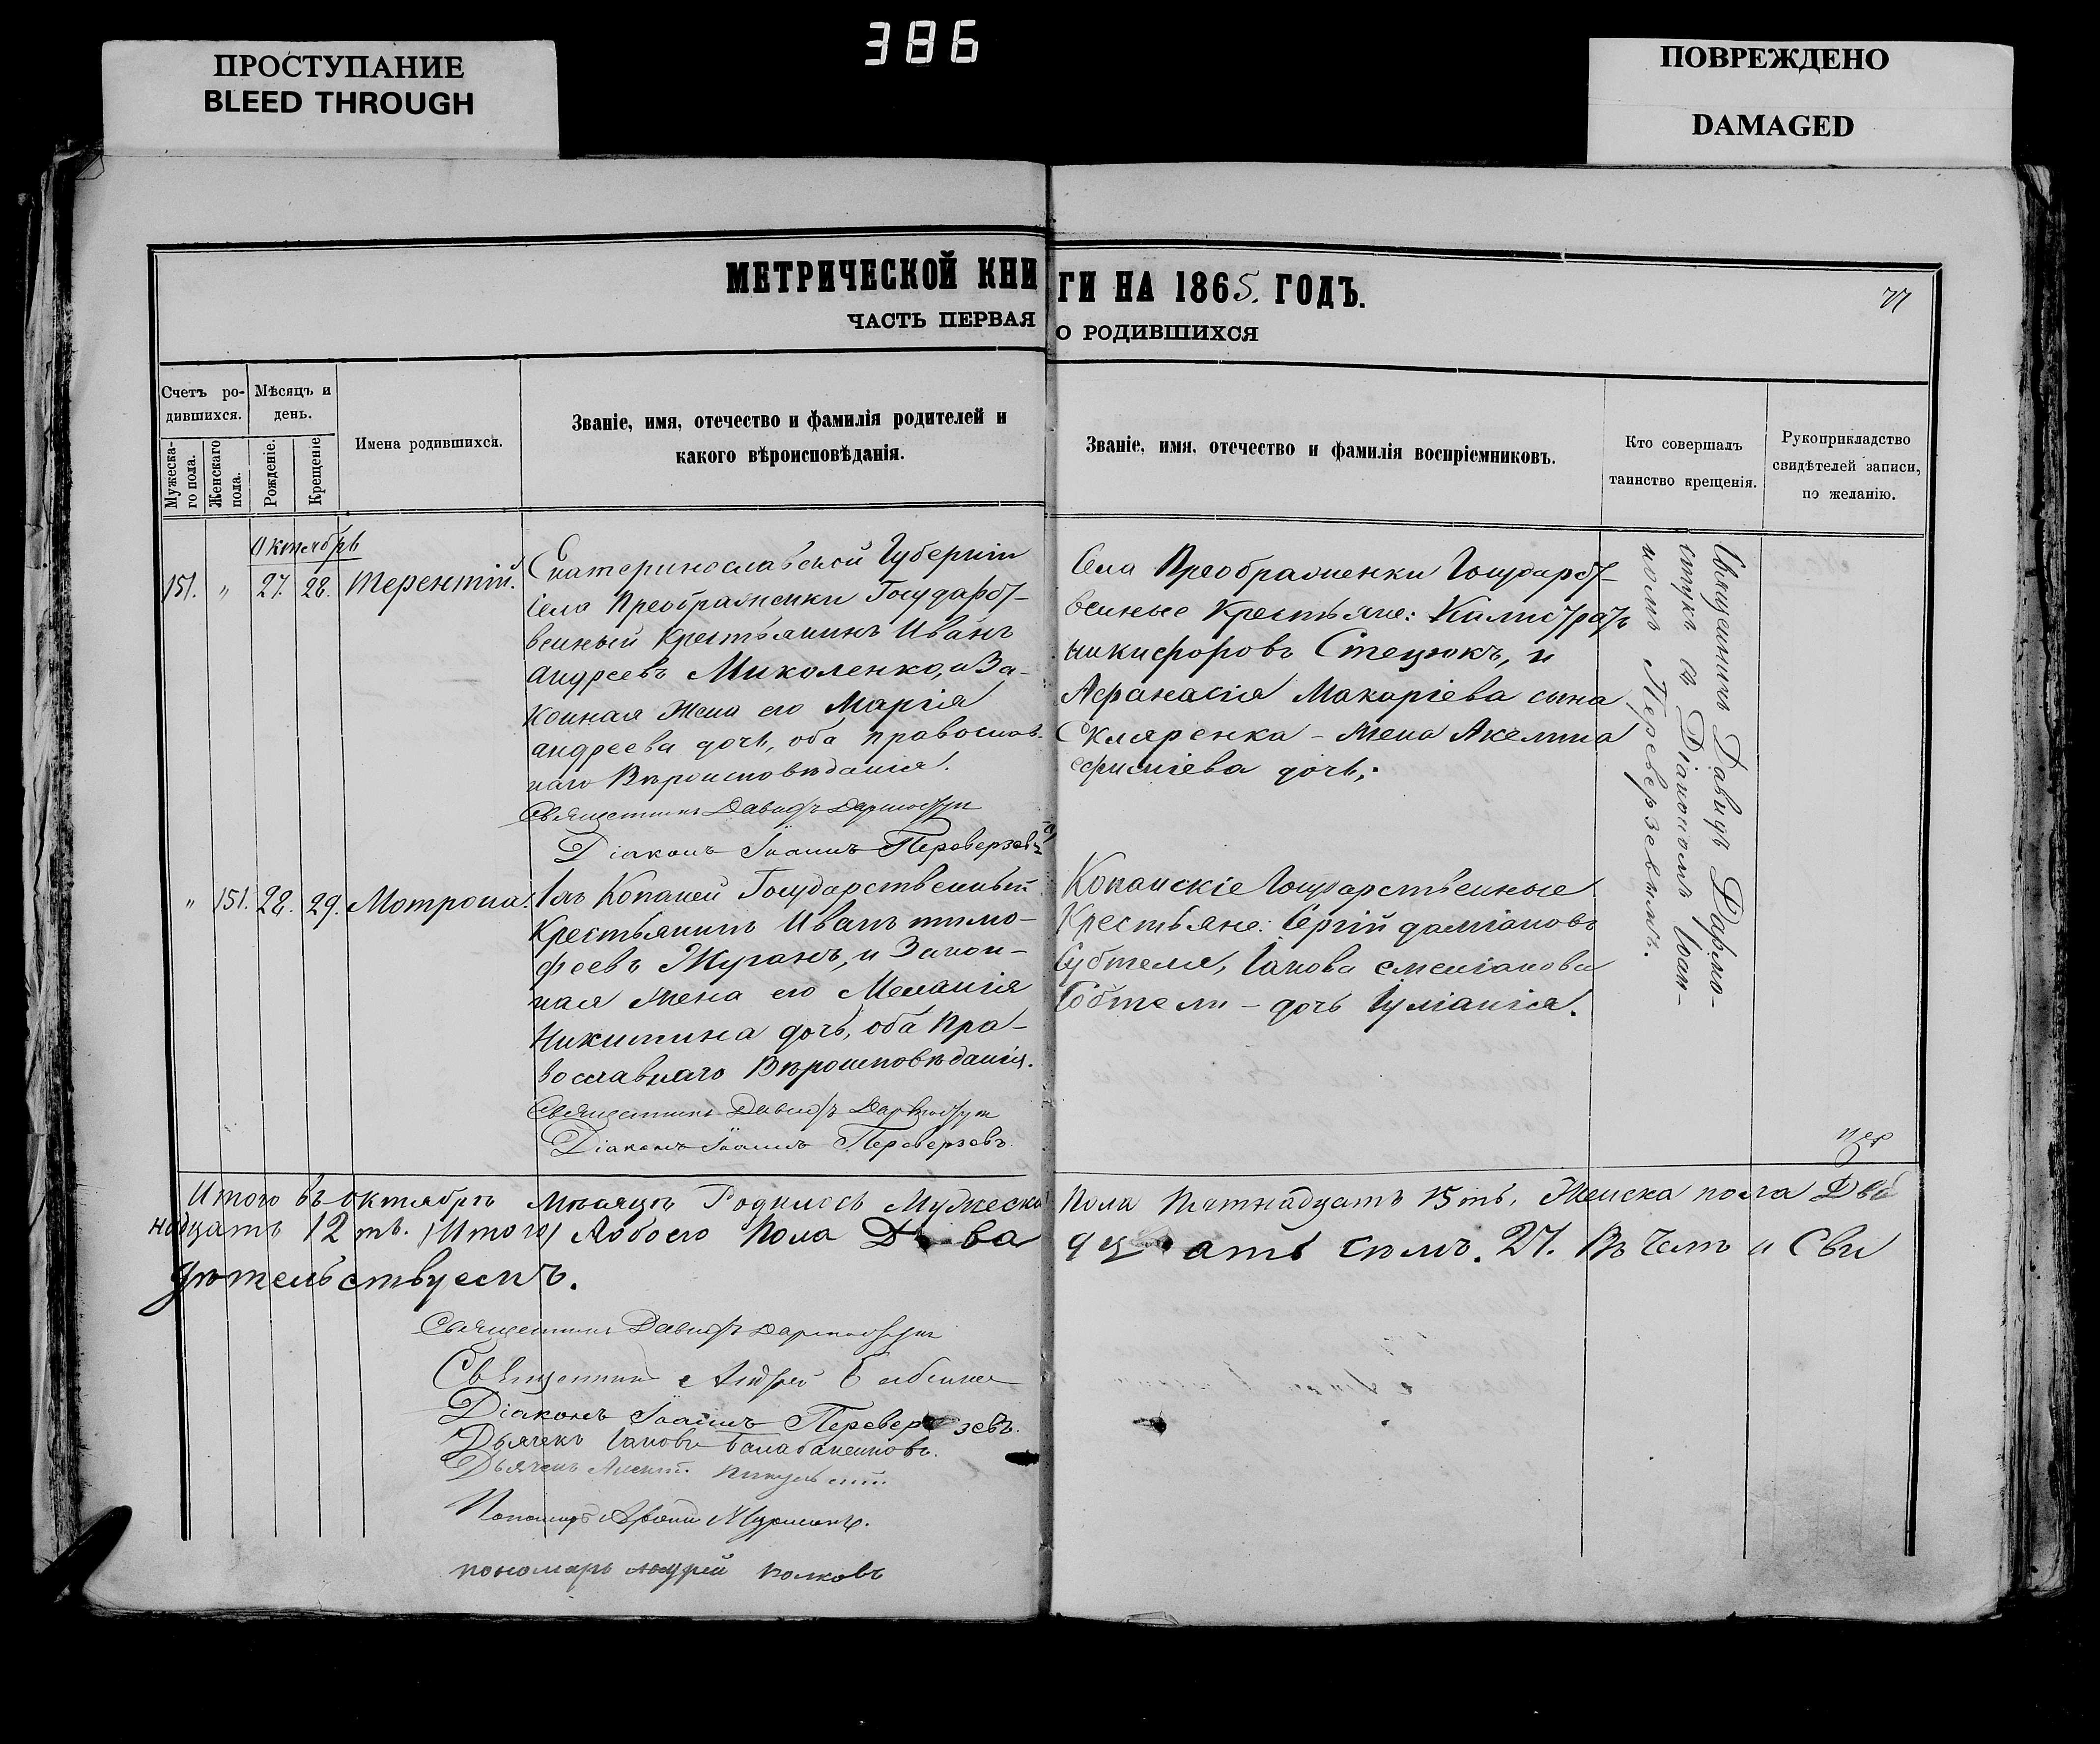 386
ПРОСТУПАНИЕ
BLEED THROUGH
ПОВРЕЖДЕНО
DAMAGED
МЕТРИЧЕСКОЙ КНИГИ НА 1865. ГОДЪ.
77
ЧАСТЬ ПЕРВАЯ О РОДИВШИХСЯ
Счетъ ро-
дившихся.
Мужеска-
го пола.
Женскаго
пола.
Мѣсяцъ и
день.
Рожденіе.
Крещеніе.
Имена родившихся.
Званіе, имя, отечество и фамилія родителей и
какого вѣроисповѣданія.
Званіе, имя, отечество и фамилія воспріемниковъ.
Кто совершалъ
таинство крещенія.
Рукоприкладство
свидѣтелей записи,
по желанію.
Октябрь
151. " 27. 28. Терентій.
Екатеринославской Губерніи
села Преображенки Государст-
венный Крестьянинъ Иванъ
Андреевъ Миколенко, и За-
конная Жена его Марія
Андреева дочь, оба православ-
наго Вѣроисповѣданія.
Священникъ Давидъ
Діаконъ Іоаннъ Переверзевъ
Села Преображенки Государст-
венные Крестьяне: Калистратъ
Никифоровъ Стецюкъ, и
Афанасія Макаріева сына
Скляренка - жена Акелина
дочь;
Священникъ Давидъ
съ Діакономъ Іоан-
номъ Переверзевымъ.
" 151. 28. 29. Мотрона.
Изъ Копаней Государственный
Крестьянинъ Иванъ Тимо-
феевъ Журанъ, и Закон-
ная Жена его Меланія
Никитина дочь, оба Пра-
вославнаго Вѣроисповѣданія.
Священникъ Давидъ
Діаконъ Іоаннъ Переверзевъ.
Копанскіе Государственные
Крестьяне: Сергій Даміановъ
Субтеля, Іакова
дочь Іуліанія.
Итого въ Октябрѣ Мѣсяцѣ Родилось Мужеска Пола Пятнадцать 15ть, Женска пола Две
надцать 12ть. Итого Обоего Пола Два дц ать Семъ. 27. Въ Чемъ и Сви
дѣтельствуемъ.
Священникъ Давидъ
Священникъ Андрей
Діаконъ Іоаннъ Переверзевъ.
Дьячекъ Іаковъ
Дьячекъ
Пономарь
пономарь Андрей Волковъ